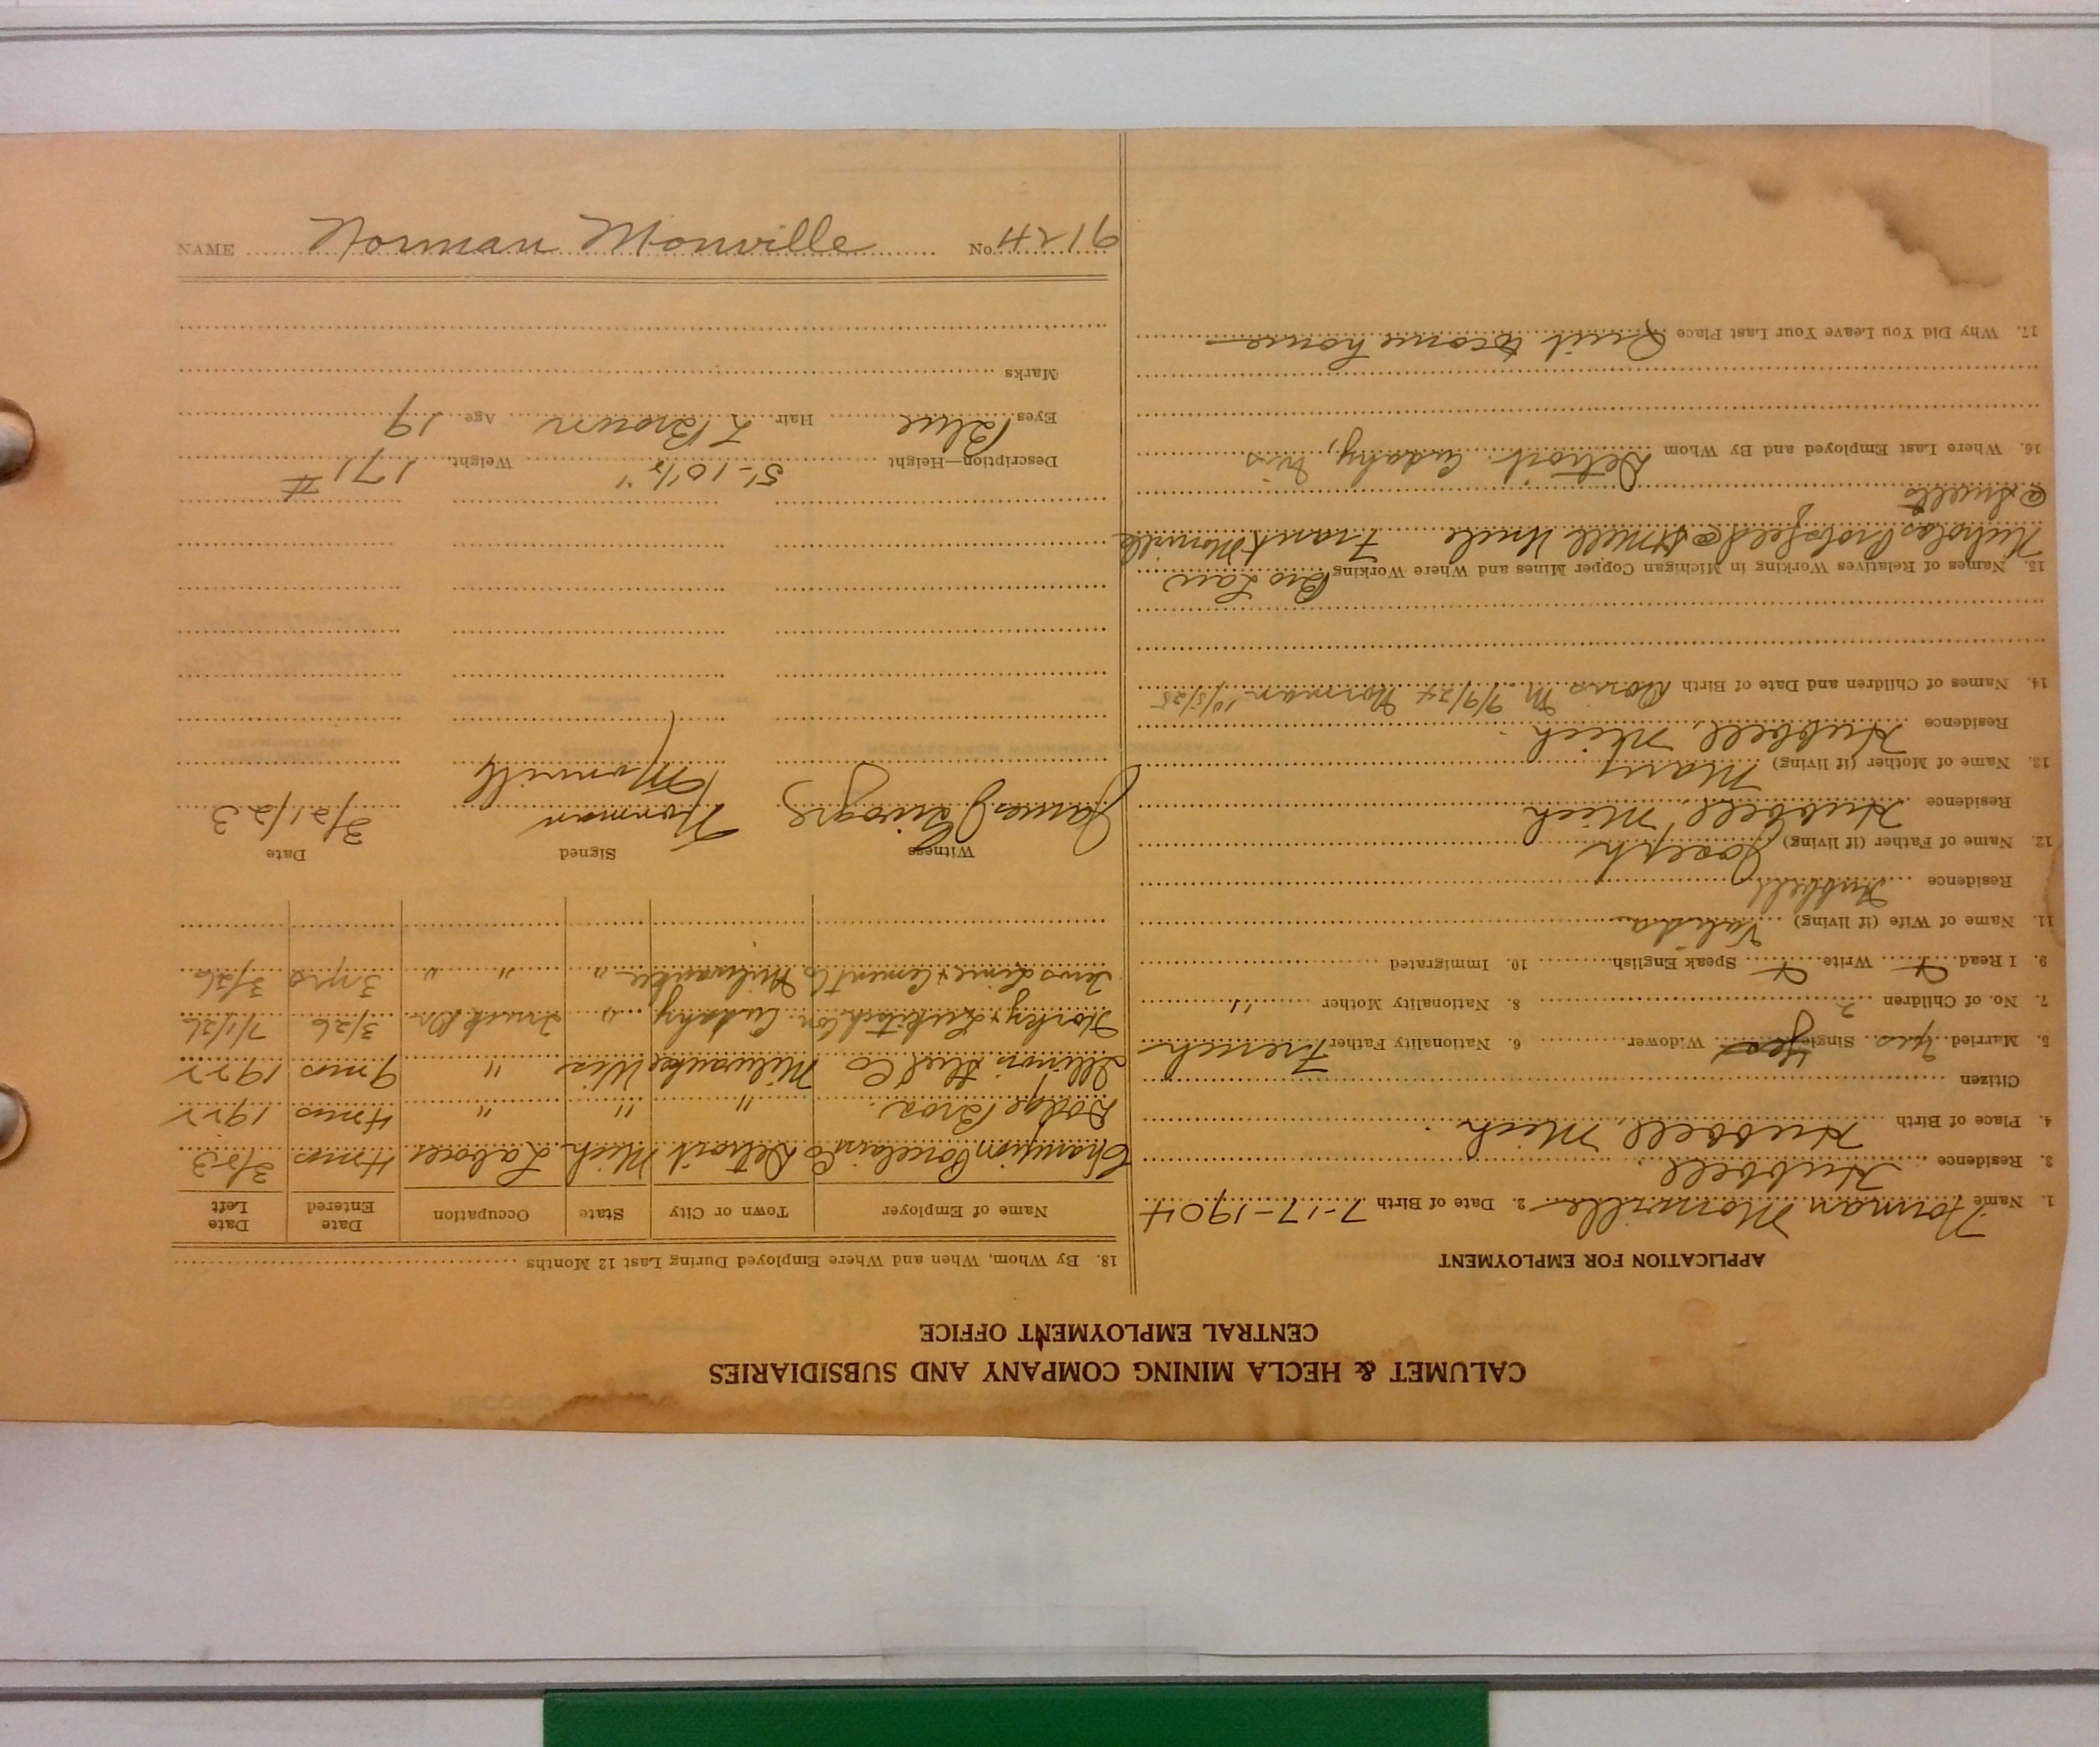 CALUMET & HECLA MINING COMPANY AND SUBSIDIARIES
CENTRAL EMPLOYMENT OFFICE
APPLICATION FOR EMPLOYMENT
1. Name Norman Monville 2. Date of Birth 7-17-1904
3. Residence Hubbell
4. Place of Birth Hubbell, Mich.
Citizen
5. Married yes Single yes Widower 6. Nationality Father French
7. No. of Children 2 8. Nationality Mother "
9. I Read Write Speak English 10. Immigrated
11. Name of Wife (if living) Valida
Residence Hubbell
12. Name of Father (if living) Joseph
Residence Hubbell, Mich
13. Name of Mother (if living) Mary
Residence Hubbell, Mich.
14. Names of Children and Date of Birth Doris M 7/9/24 Norman 10/5/25
15. Names of Relatives Working in Michigan Copper Mines and Where Working Bro Law
Nicholas @ S Mill Uncle Frank Monville
@ Smelt
16. Where Last Employed and By Whom Detroit. Cudahy, Wis
17. Why Did You Leave Your Last Place Quit to come home
18. By Whom, When and Where Employed During Last 12 Months
Name of Employer Town or City State Occupation Date Entered Date Left
Champion Porcelain Co Detroit Mich Laborer 4 mos 3/23
Dodge Bros. " " " 4 mos 1922
Illinois Steel Co Milwaukee Wis " 9 mos 1922
Cudahy " Truck Dr. 3/26 7/1/26
Tews Lime & Cement Co Milwaukee " " " 3 mos 3/26
Witness Signed Date
James Norman Monville 3/21/23
Description—Height 5'-10 1/2" Weight 171 #
Eyes Blue Hair L Brown Age 19
Marks
NAME Norman Monville No. 9124